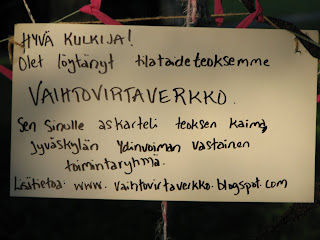 HYVÄ KULKIJA!
Olet löytänyt tilataideteoksemme
VAIHTOVIRTAVERKKO.
Sen Sinulle askarteli teoksen kaima,
Jyväskylän Ydinvoiman vastainen
toimintaryhmä.
Lisätietoa: www.vaihtovirtaverkko.blogspot.com